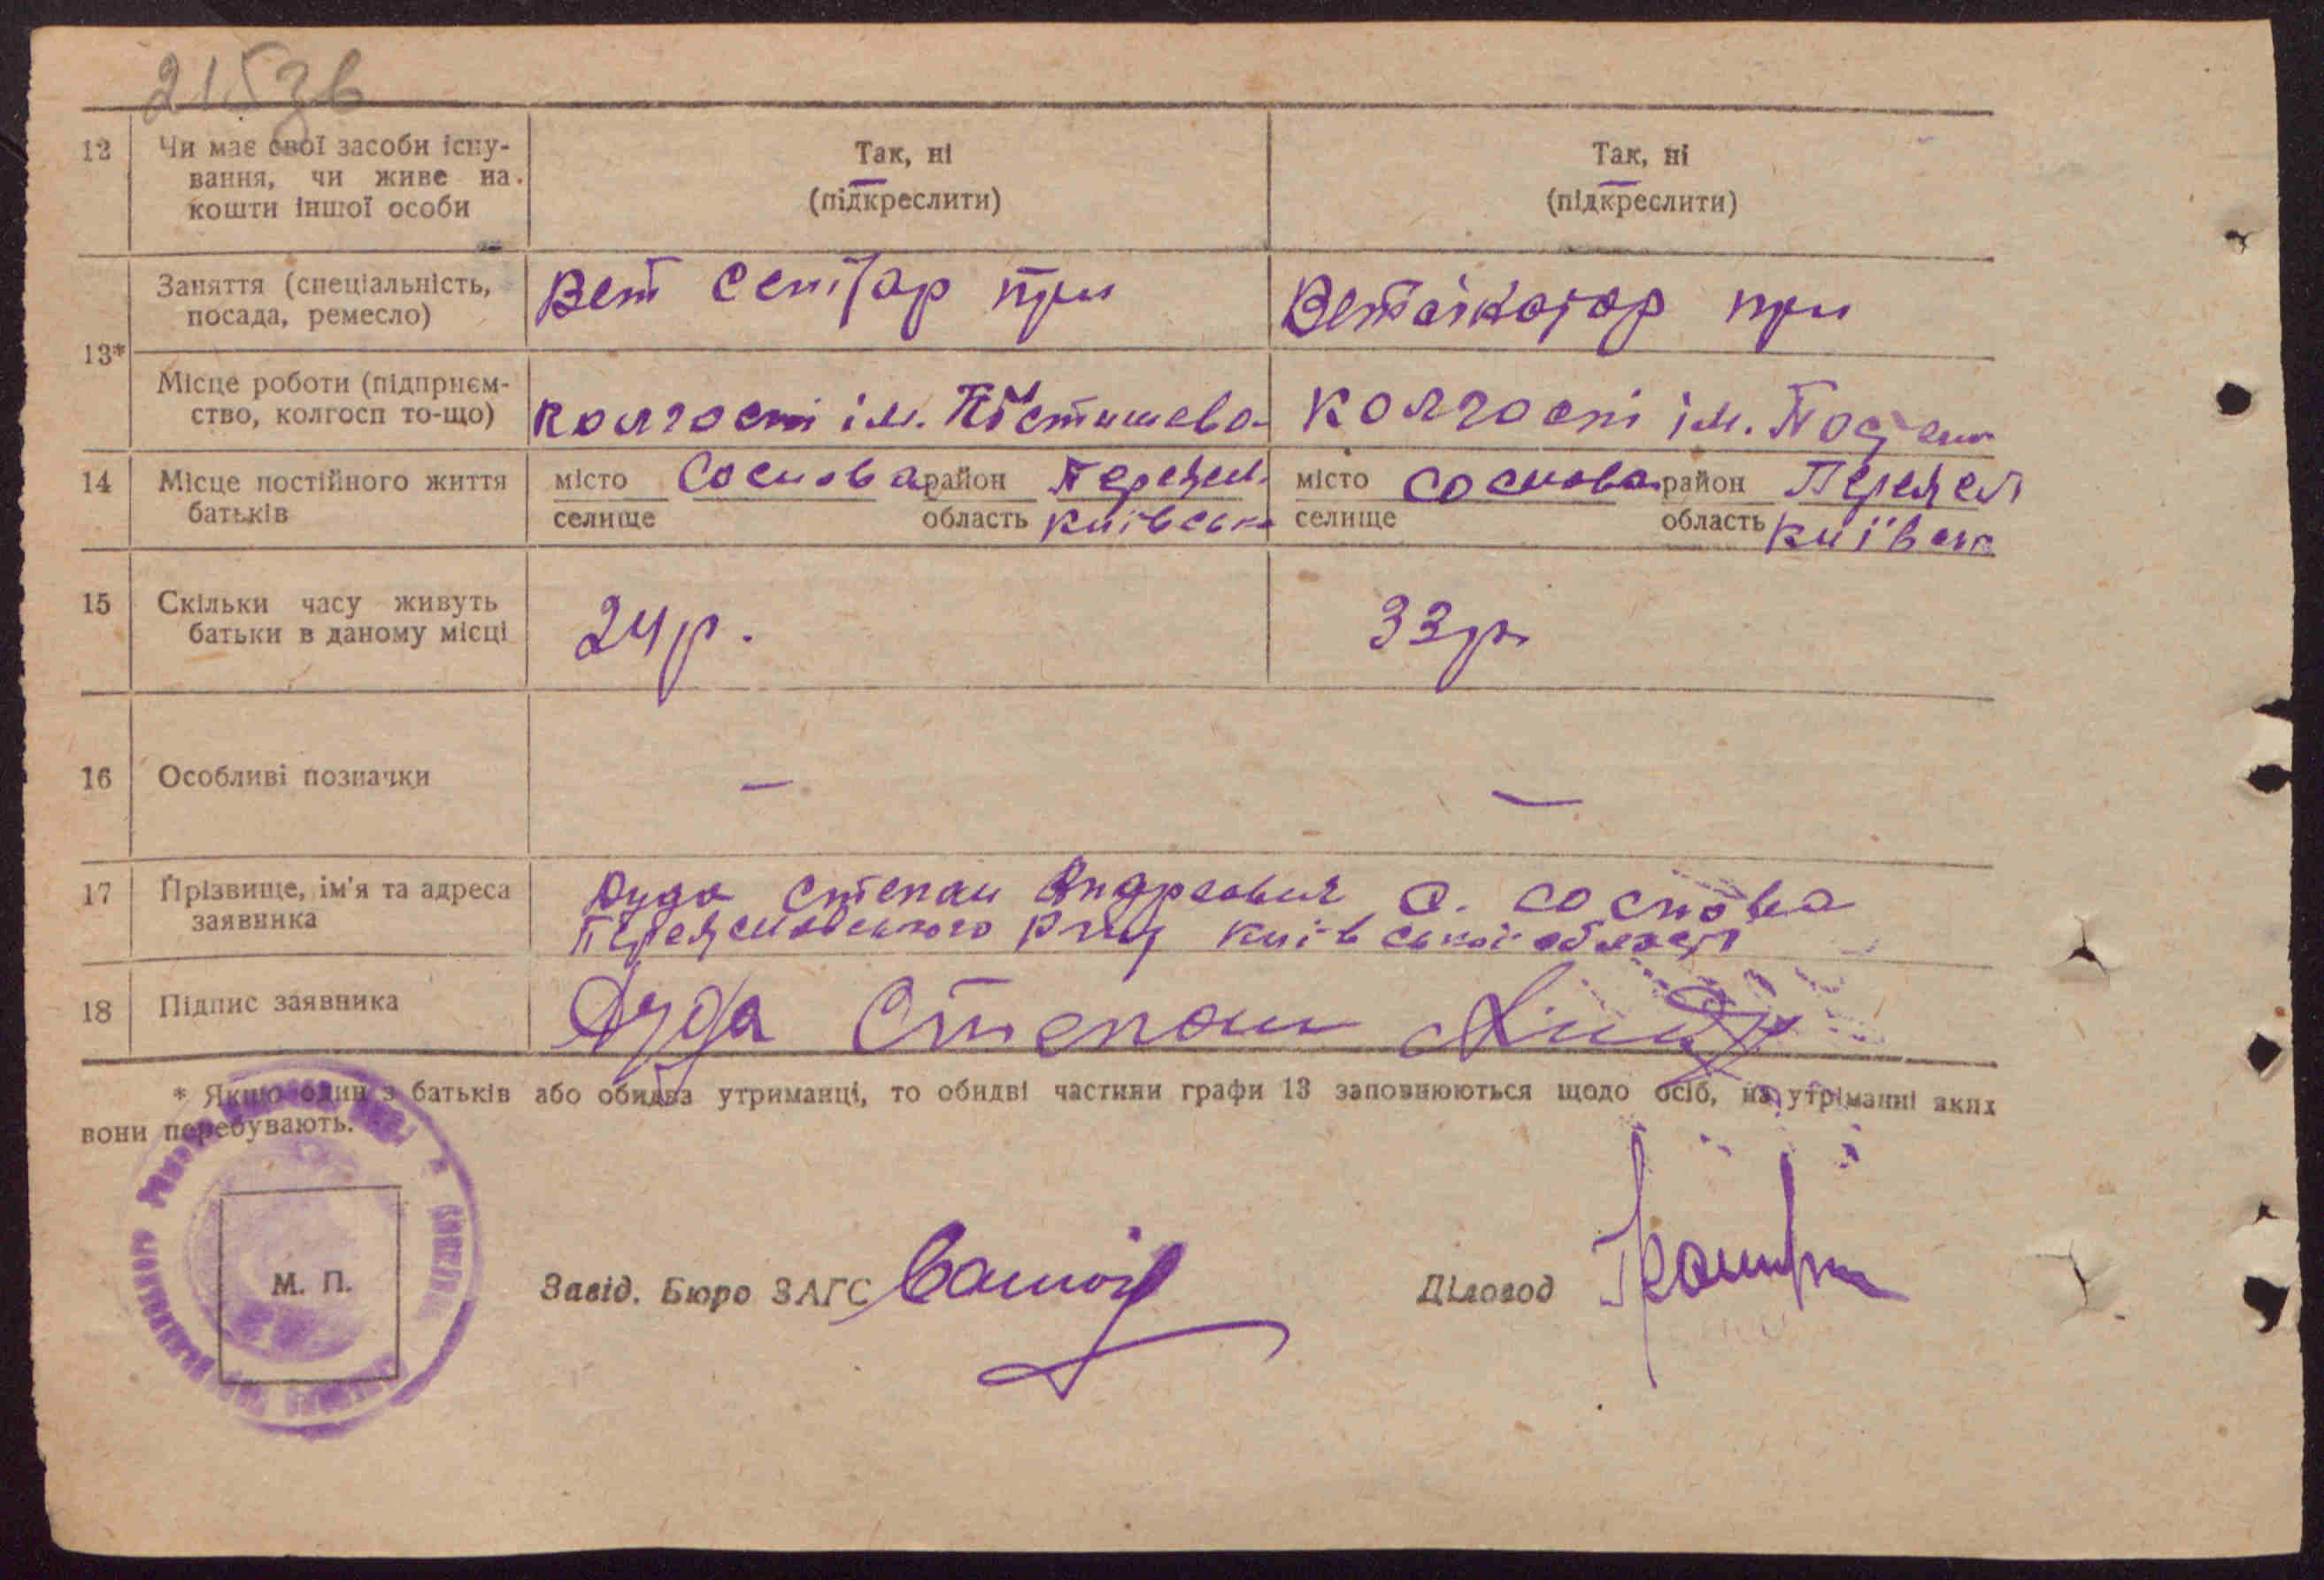 215зв
12 Чи має свої засоби існу- Так, ні Так, ні
вання, чи живе на (підкреслити) (підкреслити)
кошти іншої особи
13* Заняття (спеціальність, Вет сенітар при при
посада, ремесло)
Місце роботи (підприєм- колгоспі ім. Постишева колгоспі ім.
ство, колгосп то-що)
14 Місце постійного життя місто Соснова район Переясл. місто Соснова район Переясл
батьків селище область Київська селище область Київськ
15 Скільки часу живуть 24р. 33р
батьки в даному місці
16 Особливі позначки — —
17 Прізвище, ім'я та адреса Дуда Степан Андреович С. Соснова
заявника Переяславського р-ну Київської області
18 Підпис заявника Дуда Степан
* Якщо один з батьків або обидва утриманці, то обидві частини графи 13 заповнюються щодо осіб, на утріманні яких
вони перебувають.
М. П.
Завід. Бюро ЗАГС Діловод